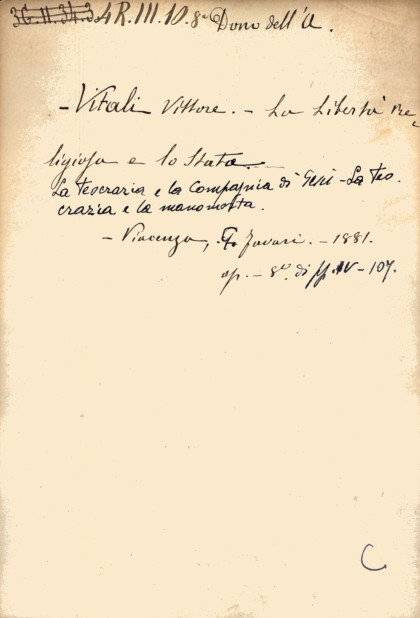 36.11.34.3 4R.III.10.8º Dono dell'A.
- Vitali Vittore. - La Libertà Re-
ligiosa e lo Stato
La teocrazia e la Compagnia di Gesù - La teo-
crazia e la manomorta.
- Piacenza, F. Favari. - 1881.
op. - 8º di pp. IV - 107.
C